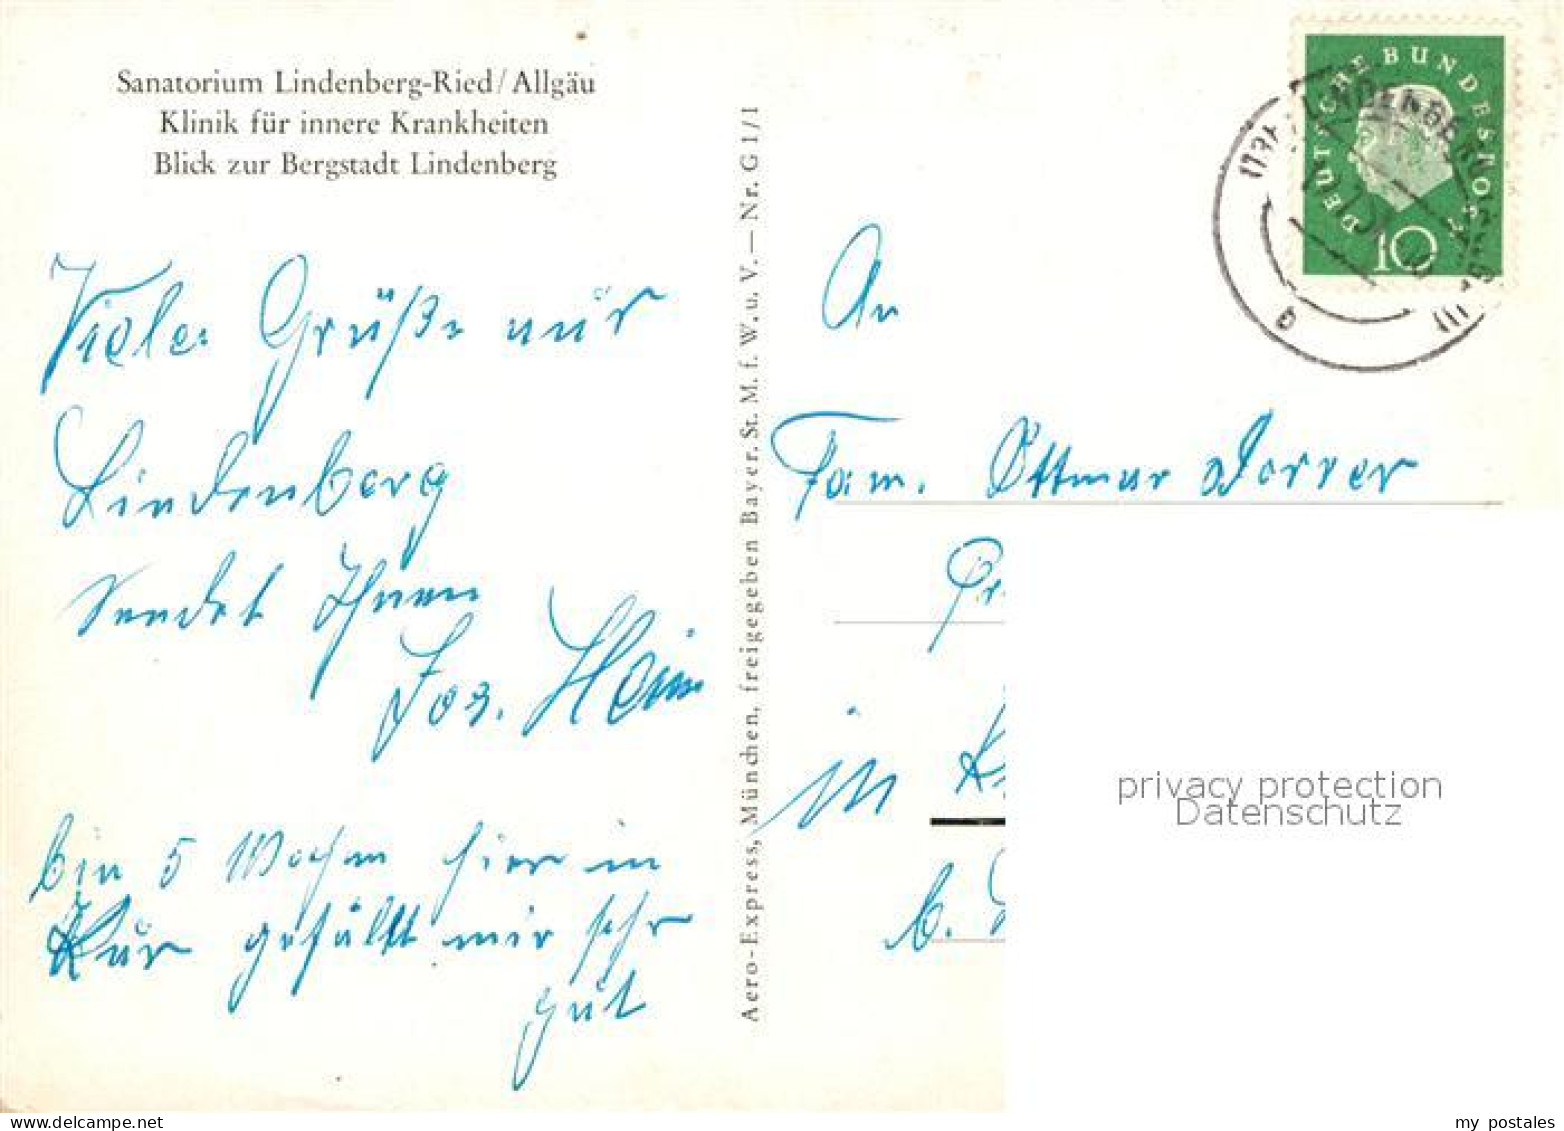 Sanatorium Lindenberg-Ried/Allgäu
Klinik für innere Krankheiten
Blick zur Bergstadt Lindenberg
Viele Grüße aus
Lindenberg
sendet Ihnen
Jos. Heim
bin 5 Wochen hier in
Kur gefällt mir sehr
gut
Aero-Express, München, freigegeben Bayer. St. M. f. W. u. V. — Nr. G 1/1
DEUTSCHE BUNDESPOST
10
LINDENBERG
b
An
Fam. Ottmar Dorrer
in
b.
privacy protection
Datenschutz
delcampe.net
my_postales